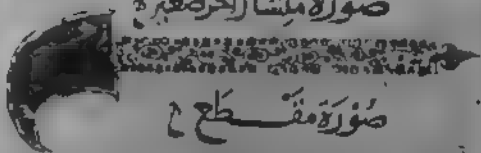 صورة منشار اخر صغير ه
صُوْرَة مقْطع ح